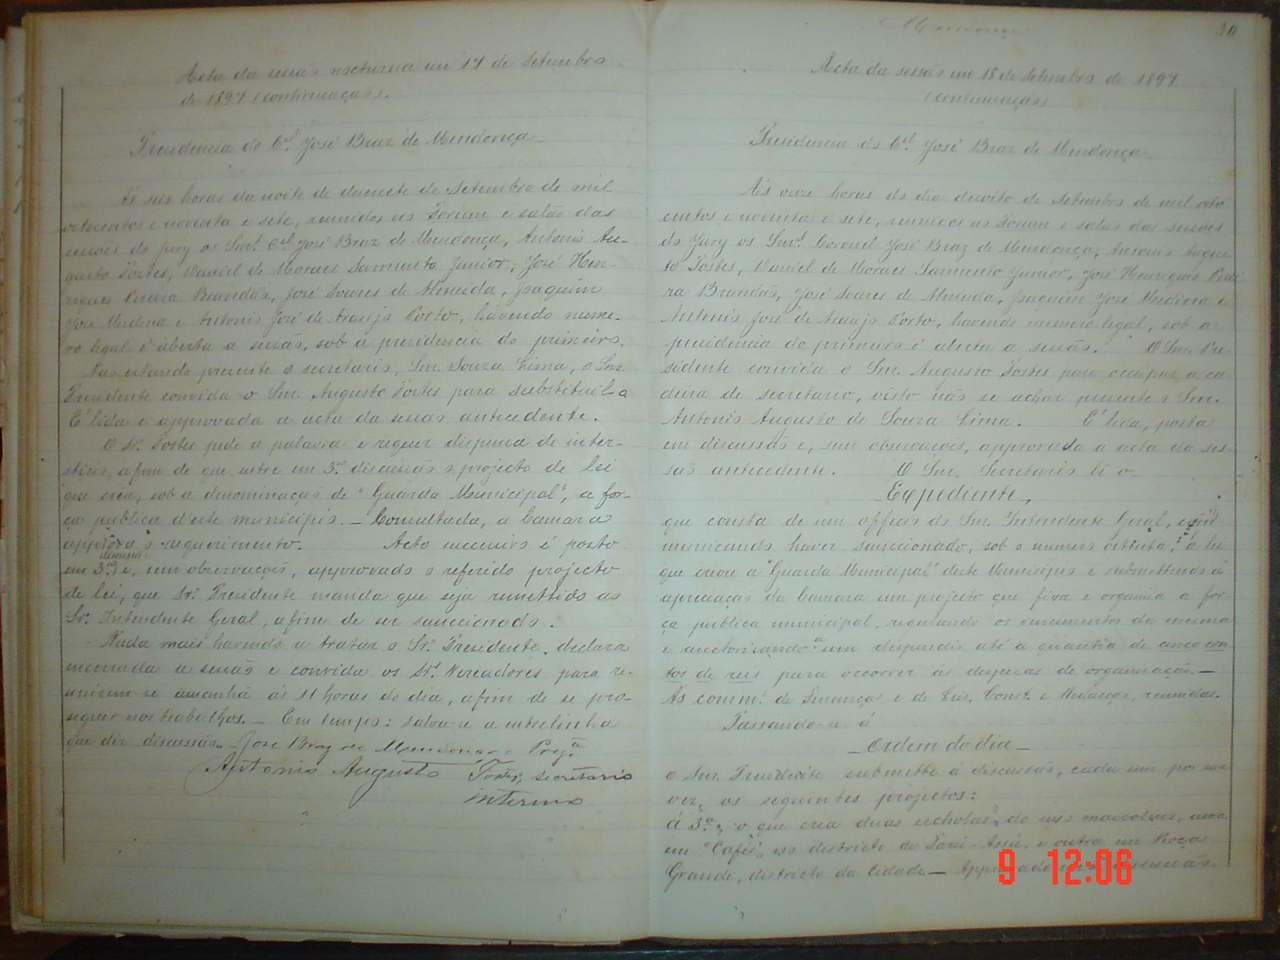 Acta da sessão nocturna em 17 de Setembro
de 1897 (continuação).
Presidencia do C.el José Braz de Mendonça
Ás seis horas da noite de desenete de Setembro de mil
oitocentos e noventa e sete, reunidos no Forum e salão das
sessões do jury os Snr.s C.el José Braz de Mendonça, Antonio Au-
gusto Fortes, Daniel de Moraes Sarmento Junior, José Hen-
riques Pereira Brandão, José Soares de Almeida, Joaquim
José Medina e Antonio José de Araujo Porto, havendo nume-
ro legal é aberta a sessão, sob a presidencia do primeiro.
Não estando presente o secretario, Snr. Souza Lima, o Snr.
Presidente convida o Snr. Augusto Fortes para substituil-o
É lida e approvada a acta da sessão antecedente.
O Sr. Fortes pede a palavra e requer dispensa de inter-
sticio, a fim de que entre em 3ª discussão o projecto de lei
que crea, sob a denominação de "Guarda Municipal", a for-
ça publica d'este municipio. — Consultada, a Camara
approva o requerimento. Acto successivo é posto
discussão
em 3ª, e, sem observações, approvado o referido projecto
de lei, que Sr. Presidente manda que seja remettido ao
Sr. Intendente Geral, a fim de ser sanccionado.
Nada mais havendo a tratar o Sr. Presidente declara
encerrada a sessão e convida os Sr.s Vereadores para re-
unirem-se amanhã ás 11 horas do dia, a fim de se pro-
seguir nos trabalhos. — Em tempo: salva-se a entrelinha
que diz discussão. José Braz de Mendonça
Antonio Augusto Fortes, secretario
interino
Mendonça
30
Acta da sessão em 18 de Setembro de 1897
(continuação)
Presidencia do C.el José Braz de Mendonça
Ás onze horas do dia dezoito de Setembro de mil oito
centos e noventa e sete, reunidos no Forum e salão das sessões
do Jury os Snr.s Coronel José Braz de Mendonça, Antonio Augus-
to Fortes, Daniel de Moraes Sarmento Junior, José Henriques Perei-
ra Brandão, José Soares de Almeida, Joaquim José Medina e
Antonio José de Araujo Porto, havendo numero legal, sob a
presidencia do primeiro é aberta a sessão. O Snr. Pre-
sidente convida o Snr. Augusto Fortes para occupar a ca-
deira de secretario, visto não se achar presente o Snr.
Antonio Augusto de Souza Lima. É lida, posta
em discussão e, sem observações, approvada a acta da ses-
são antecedente. O Snr. Secretario lê o
Expediente,
que consta de um officio do Snr. Intendente Geral, com-
municando haver sanccionado, sob o numero oitenta, a lei
que creou a "Guarda Municipal" deste Municipio e submettendo á
apreciação da Camara um projecto que fixa e organisa a for-
ça publica municipal, regulando os vencimentos da mesma
e auctorizando um dispendio até a quantia de cinco con-
tos de reis para occorrer ás despezas de organisação. —
Ás comm. de Finanças e de Leis, Const. e Redacção, reunidas.
Passando-se á
Ordem do dia
o Snr. Presidente submette á discussão, cada um por sua
vez, os seguintes projectos:
á 3ª, o que crea duas escholas do sexo masculino, uma
em "Café", no districto de e outra em Roça
Grande, districto da Cidade —
9 12:06